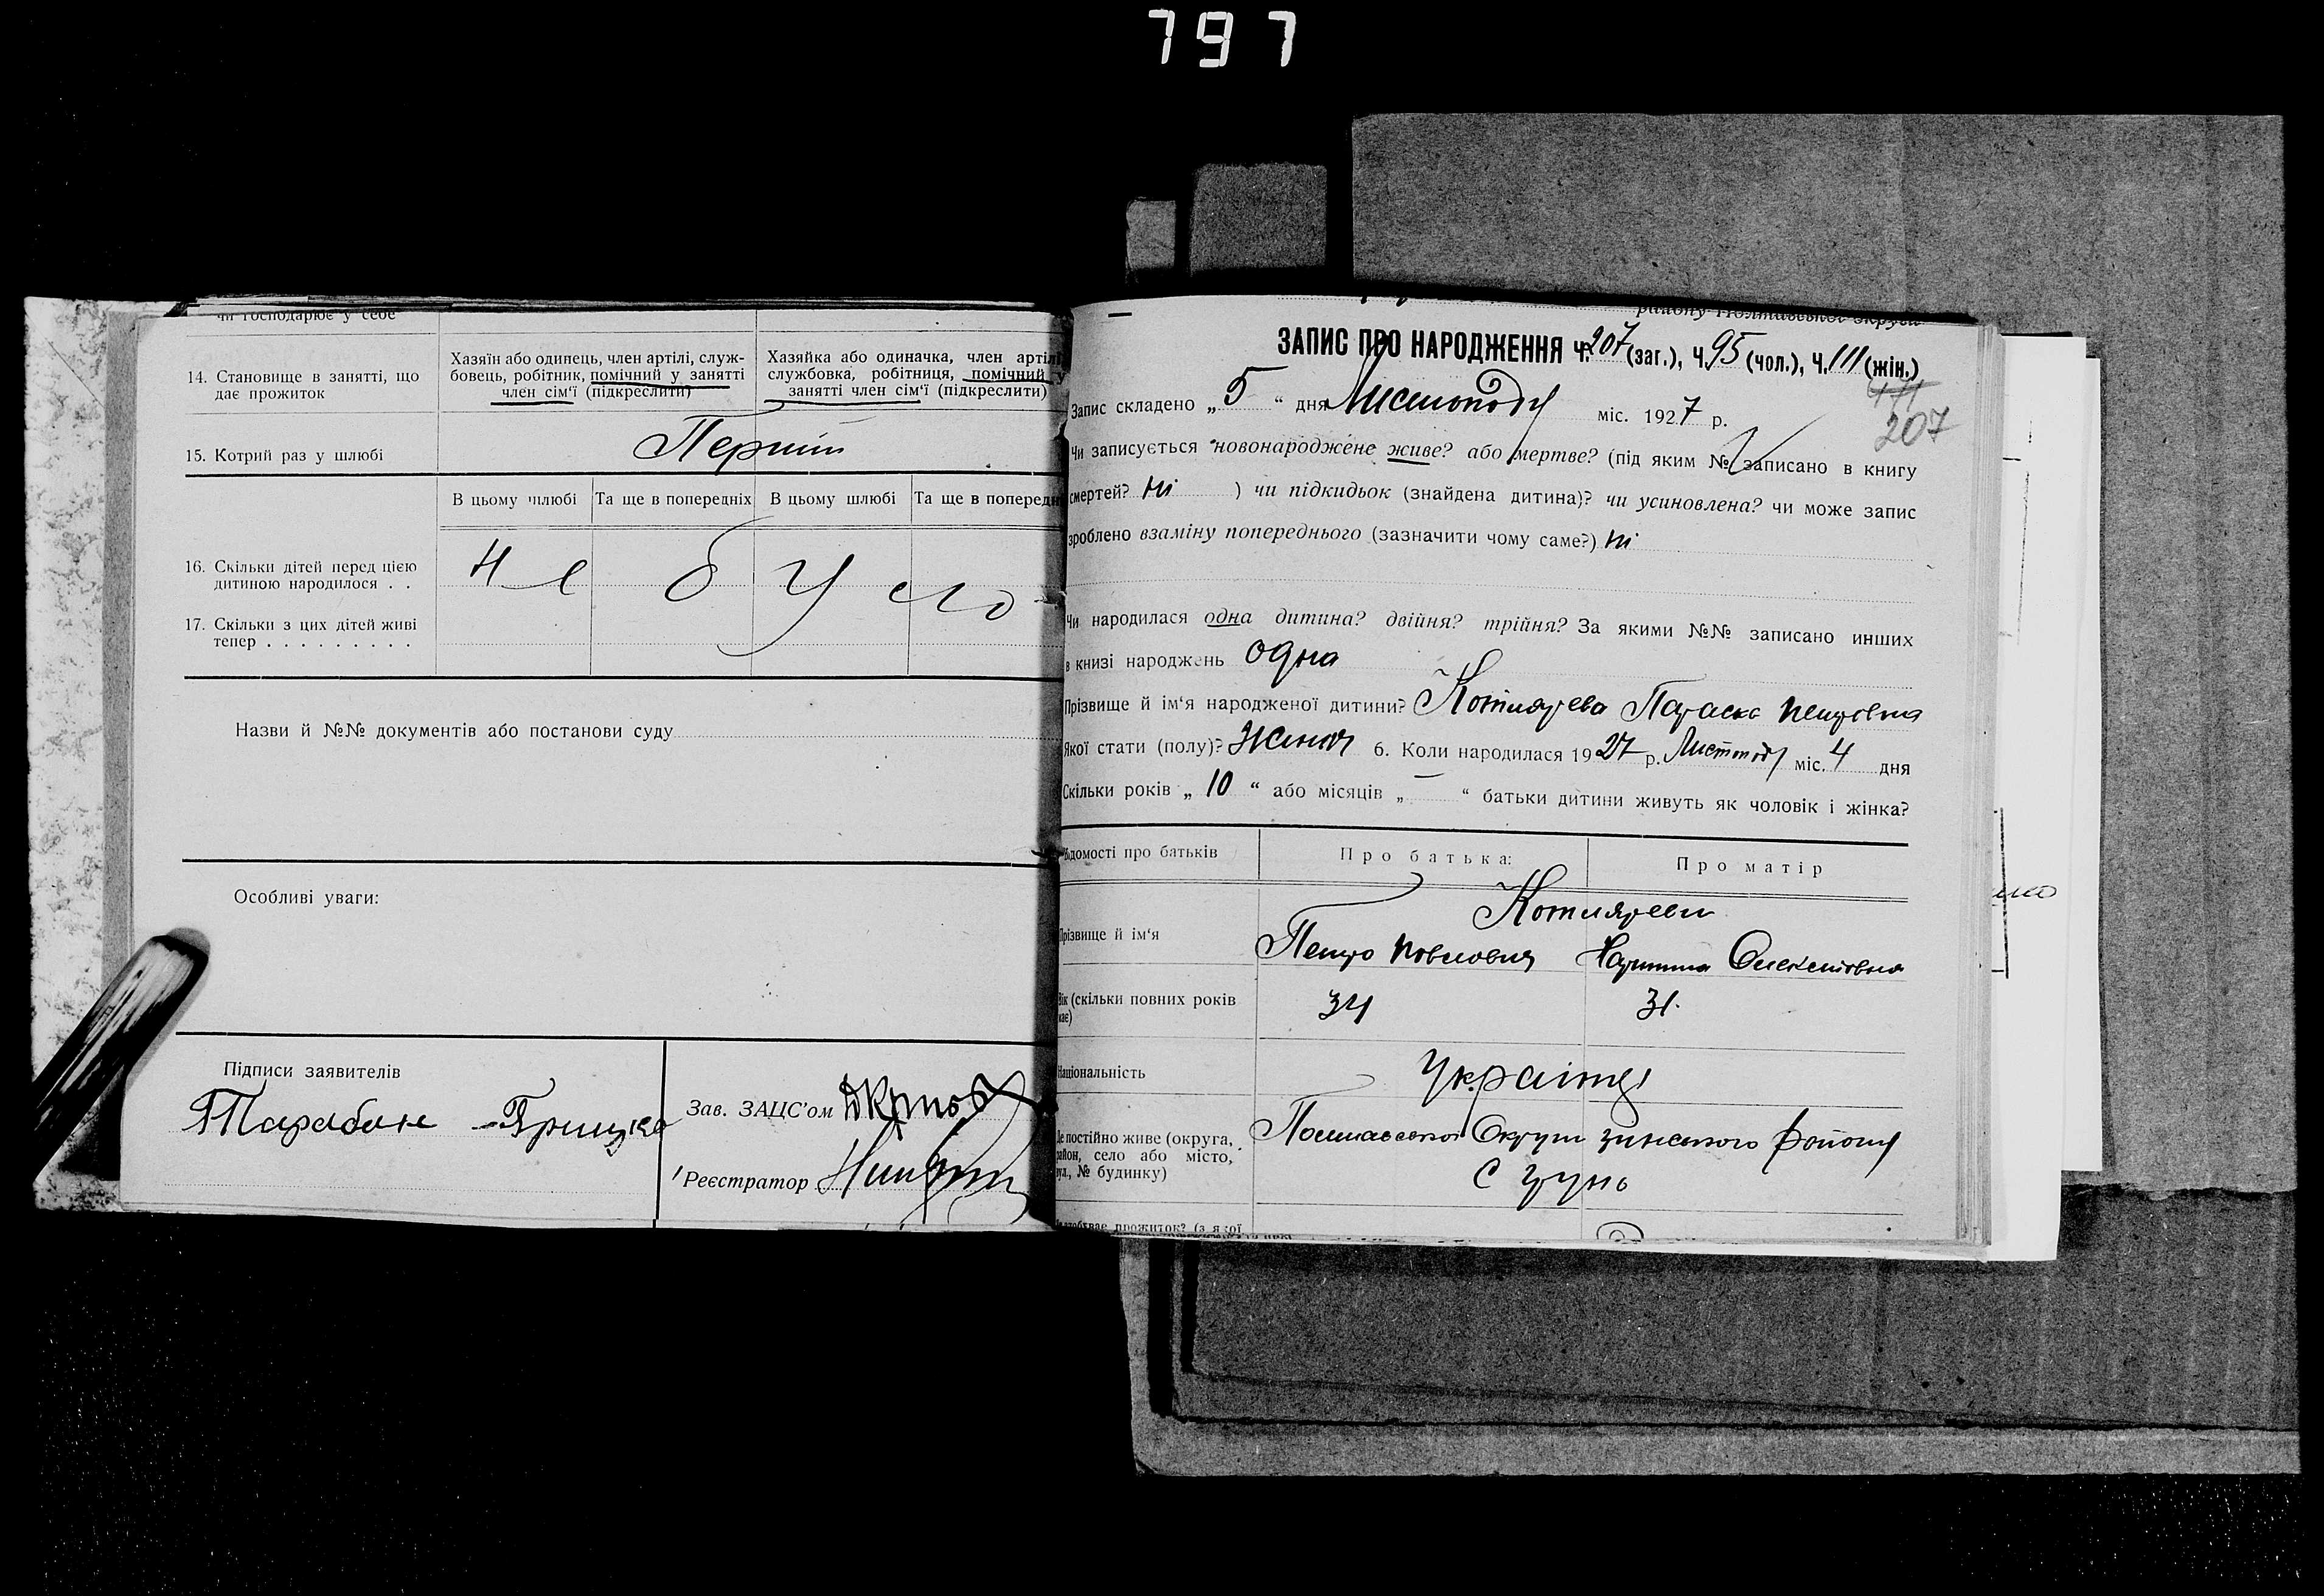 797
чи господарює у себе
14. Становище в занятті, що
дає прожиток
Хазяїн або одинець, член артілі, служ-
бовець, робітник, помічний у занятті
член сім'ї (підкреслити)
Хазяйка або одиначка, член артілі
службовка, робітниця, помічний у
занятті член сім'ї (підкреслити)
15. Котрий раз у шлюбі
Перший
В цьому шлюбі Та ще в попередніх В цьому шлюбі Та ще в попередн
16. Скільки дітей перед цією
дитиною народилося . .
Не було
17. Скільки з цих дітей живі
тепер . . . . . . . . .
Назви й №№ документів або постанови суду
Особливі уваги:
Підписи заявителів
Тарабан Грицко
Зав. ЗАЦС'ом
Реєстратор
району Полтавської округи
ЗАПИС ПРО НАРОДЖЕННЯ Ч. 207 (заг.), Ч. 95 (чол.), Ч. 111 (жін.)
207
Запис складено „5“ дня Листопаду міс. 1927 р.
Чи записується новонароджене живе? або мертве? (під яким № записано в книгу
смертей? ні ) чи підкидьок (знайдена дитина)? чи усиновлена? чи може запис
зроблено взаміну попереднього (зазначити чому саме?) ні
Чи народилася одна дитина? двійня? трійня? За якими №№ записано инших
в книзі народжень одна
Прізвище й ім'я народженої дитини? Котлярева Параска Петровна
Якої стати (полу)? Жіноч 6. Коли народилася 1927 р. Листопаду міс. 4 дня
Скільки років „10“ або місяців „—“ батьки дитини живуть як чоловік і жінка?
Відомості про батьків
Про батька:
Про матір
Котляреви
Прізвище й ім'я
Петро Павлович Харитина Олексіївна
Вік (скільки повних років
має)
34 31.
Національність
Українці
Де постійно живе (округа,
район, село або місто,
вул., № будинку)
Полтавської Округи Зінського району
с Зунь
прожиток? (з якої